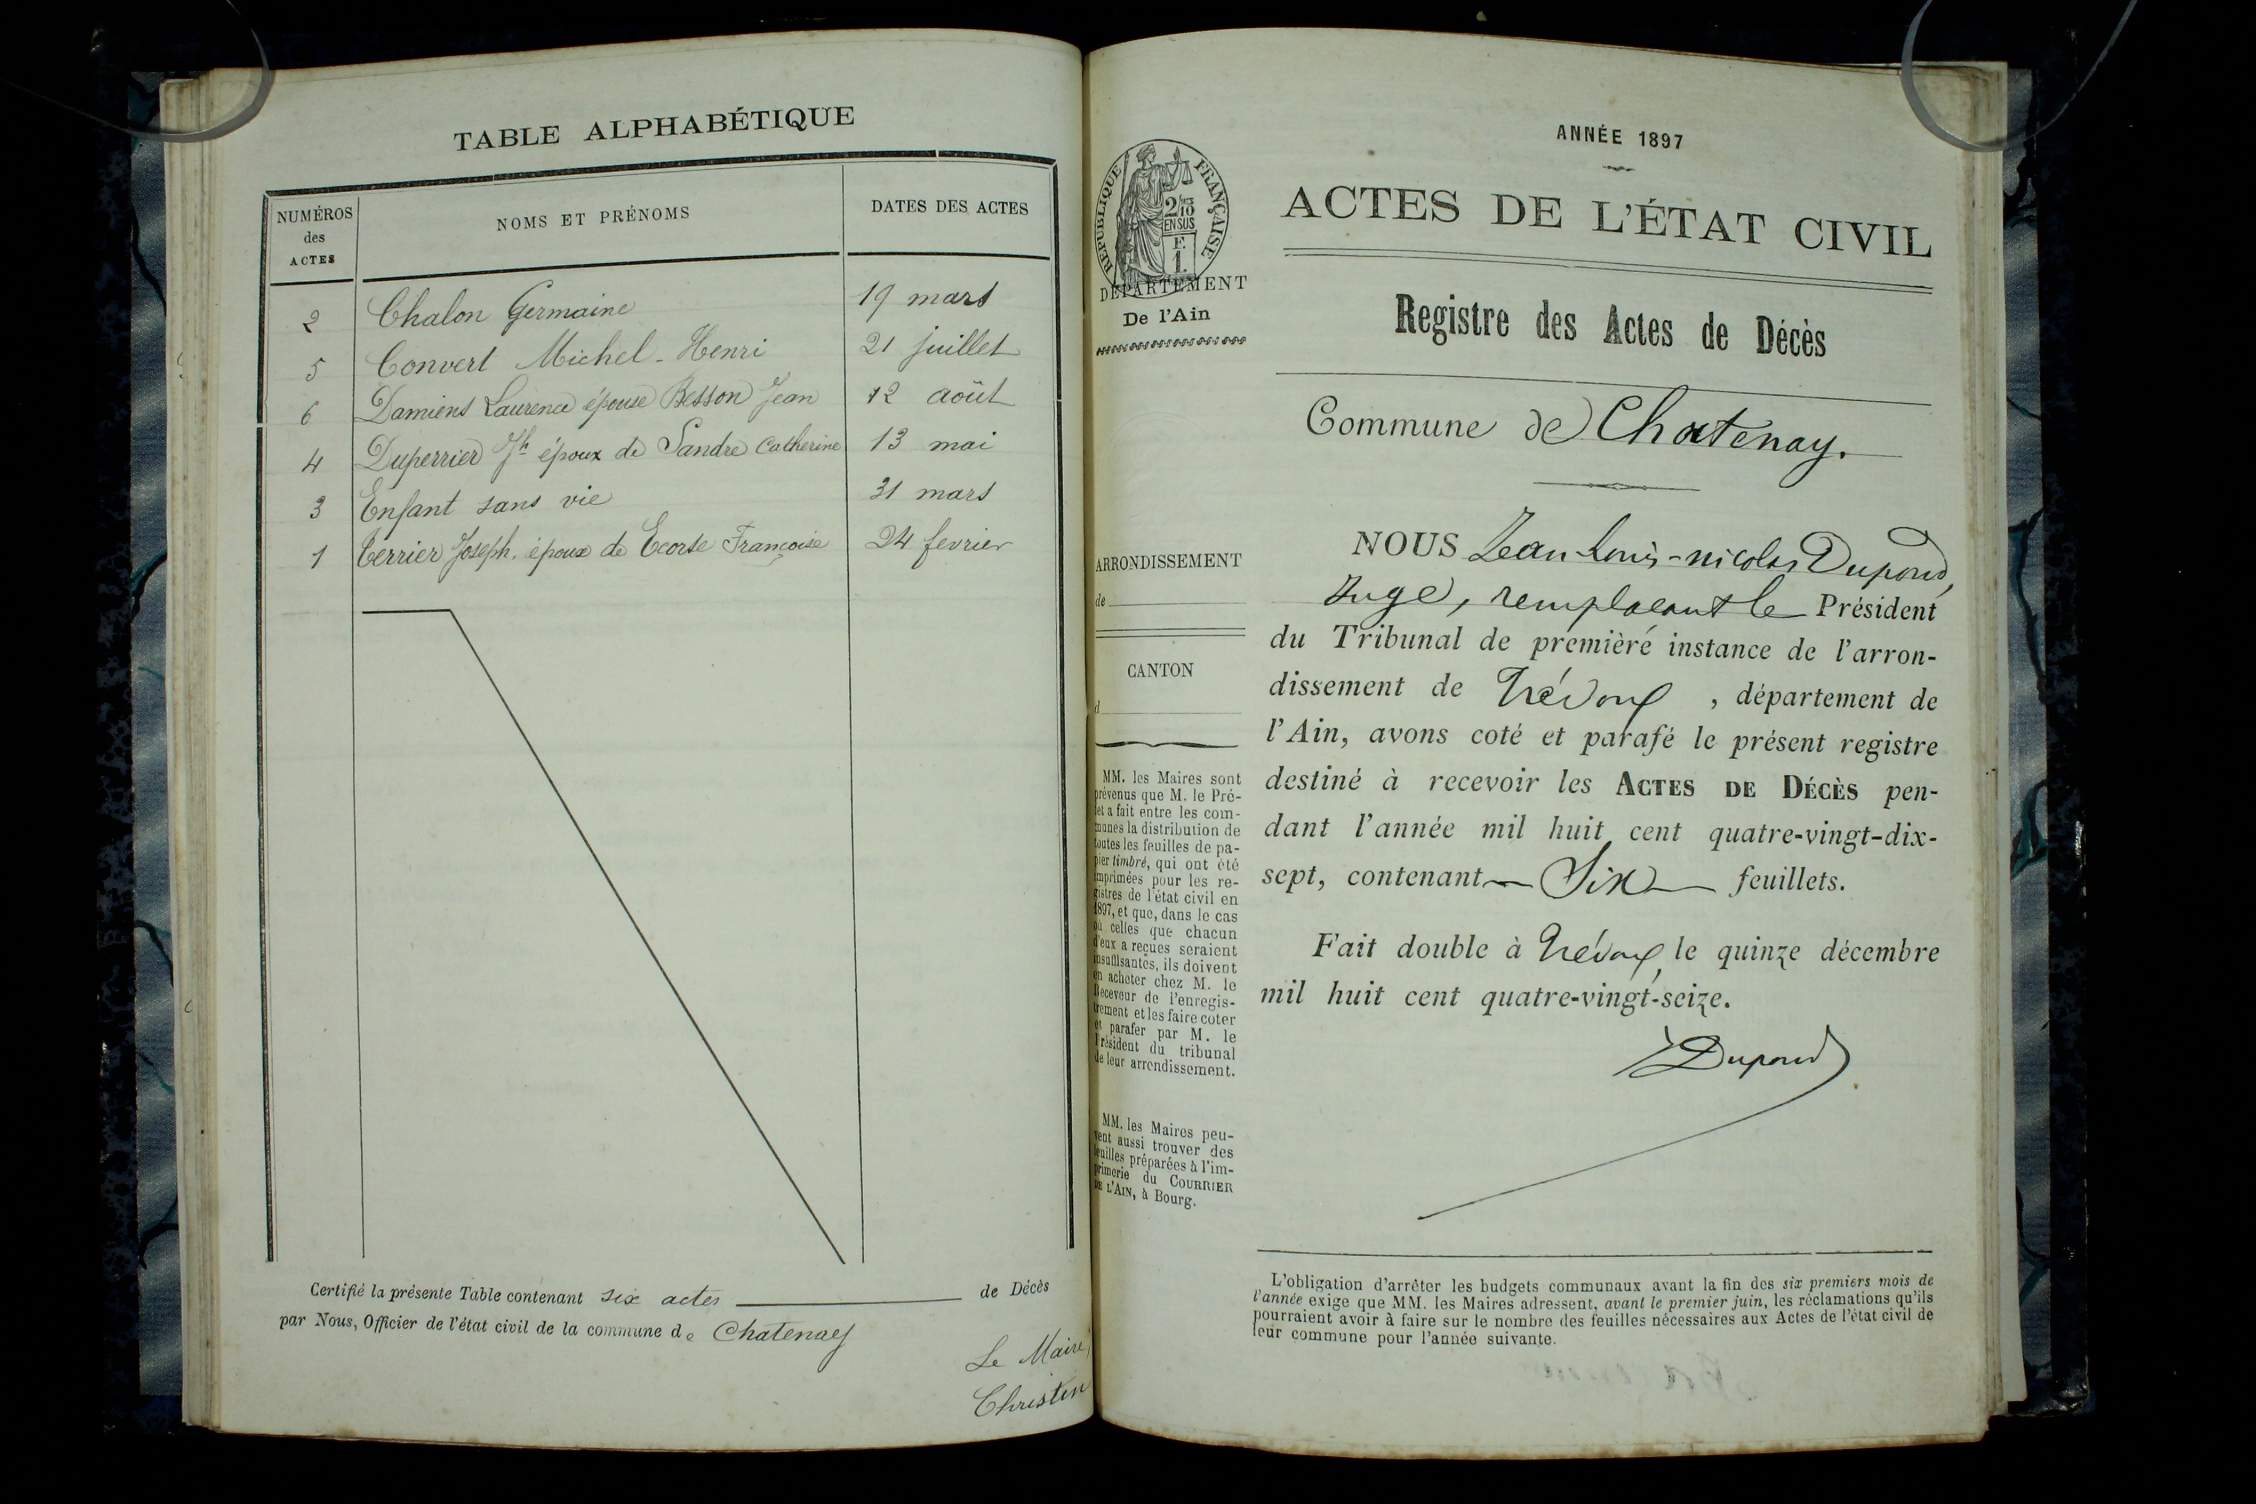 TABLE ALPHABÉTIQUE
NUMÉROS
des
ACTES
NOMS ET PRÉNOMS
DATES DES ACTES
2 Chalon Germaine 19 mars
5 Convert Michel-Henri 21 juillet
6 Damiens Laurence épouse Besson Jean 12 août
4 Duperrier Jh époux de Sandre Catherine 13 mai
3 Enfant sans vie 31 mars
1 Terrier Joseph, époux de Ecorse Françoise 24 fevrier
Certifié la présente Table contenant six actes de Décès
par Nous, Officier de l'état civil de la commune de Chatenay
Le Maire,
Christin
RÉPUBLIQUE FRANÇAISE
2/10
EN SUS
F.
1.
DÉPARTEMENT
De l'Ain
ARRONDISSEMENT
de
CANTON
d
MM. les Maires sont
prévenus que M. le Pré-
fet a fait entre les com-
munes la distribution de
toutes les feuilles de pa-
pier timbré, qui ont été
imprimées pour les re-
gistres de l'état civil en
1897, et que, dans le cas
où celles que chacun
d'eux a reçues seraient
insuffisantes, ils doivent
en acheter chez M. le
Receveur de l'enregis-
trement et les faire coter
et parafer par M. le
Président du tribunal
de leur arrondissement.
MM. les Maires peu-
vent aussi trouver des
feuilles préparées à l'im-
primerie du COURRIER
DE L'AIN, à Bourg.
ANNÉE 1897
ACTES DE L'ÉTAT CIVIL
Registre des Actes de Décès
Commune de Chatenay.
NOUS Jean-Louis-nicolas Dupond,
Juge, remplacant le Président
du Tribunal de première instance de l'arron-
dissement de Trévoux, département de
l'Ain, avons coté et parafé le présent registre
destiné à recevoir les ACTES DE DÉCÈS pen-
dant l'année mil huit cent quatre-vingt-dix-
sept, contenant Six feuillets.
Fait double à Trévoux, le quinze décembre
mil huit cent quatre-vingt-seize.
Dupond
L'obligation d'arrêter les budgets communaux avant la fin des six premiers mois de
l'année exige que MM. les Maires adressent, avant le premier juin, les réclamations qu'ils
pourraient avoir à faire sur le nombre des feuilles nécessaires aux Actes de l'état civil de
leur commune pour l'année suivante.